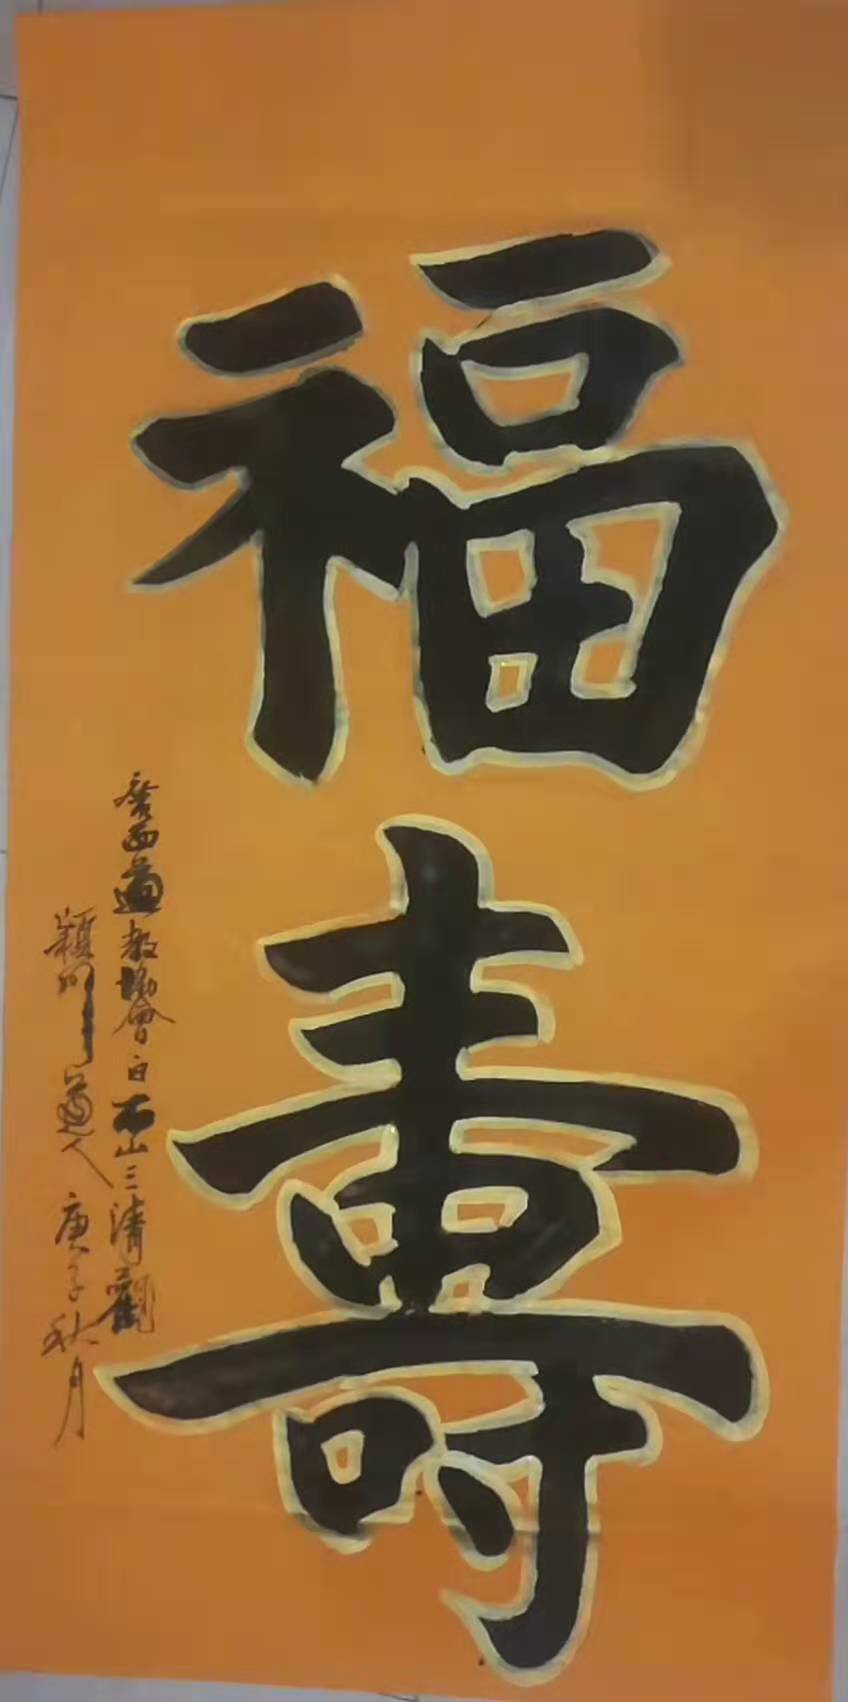 福壽
廣西道教協會白石山三清觀
潁川道人庚子秋月